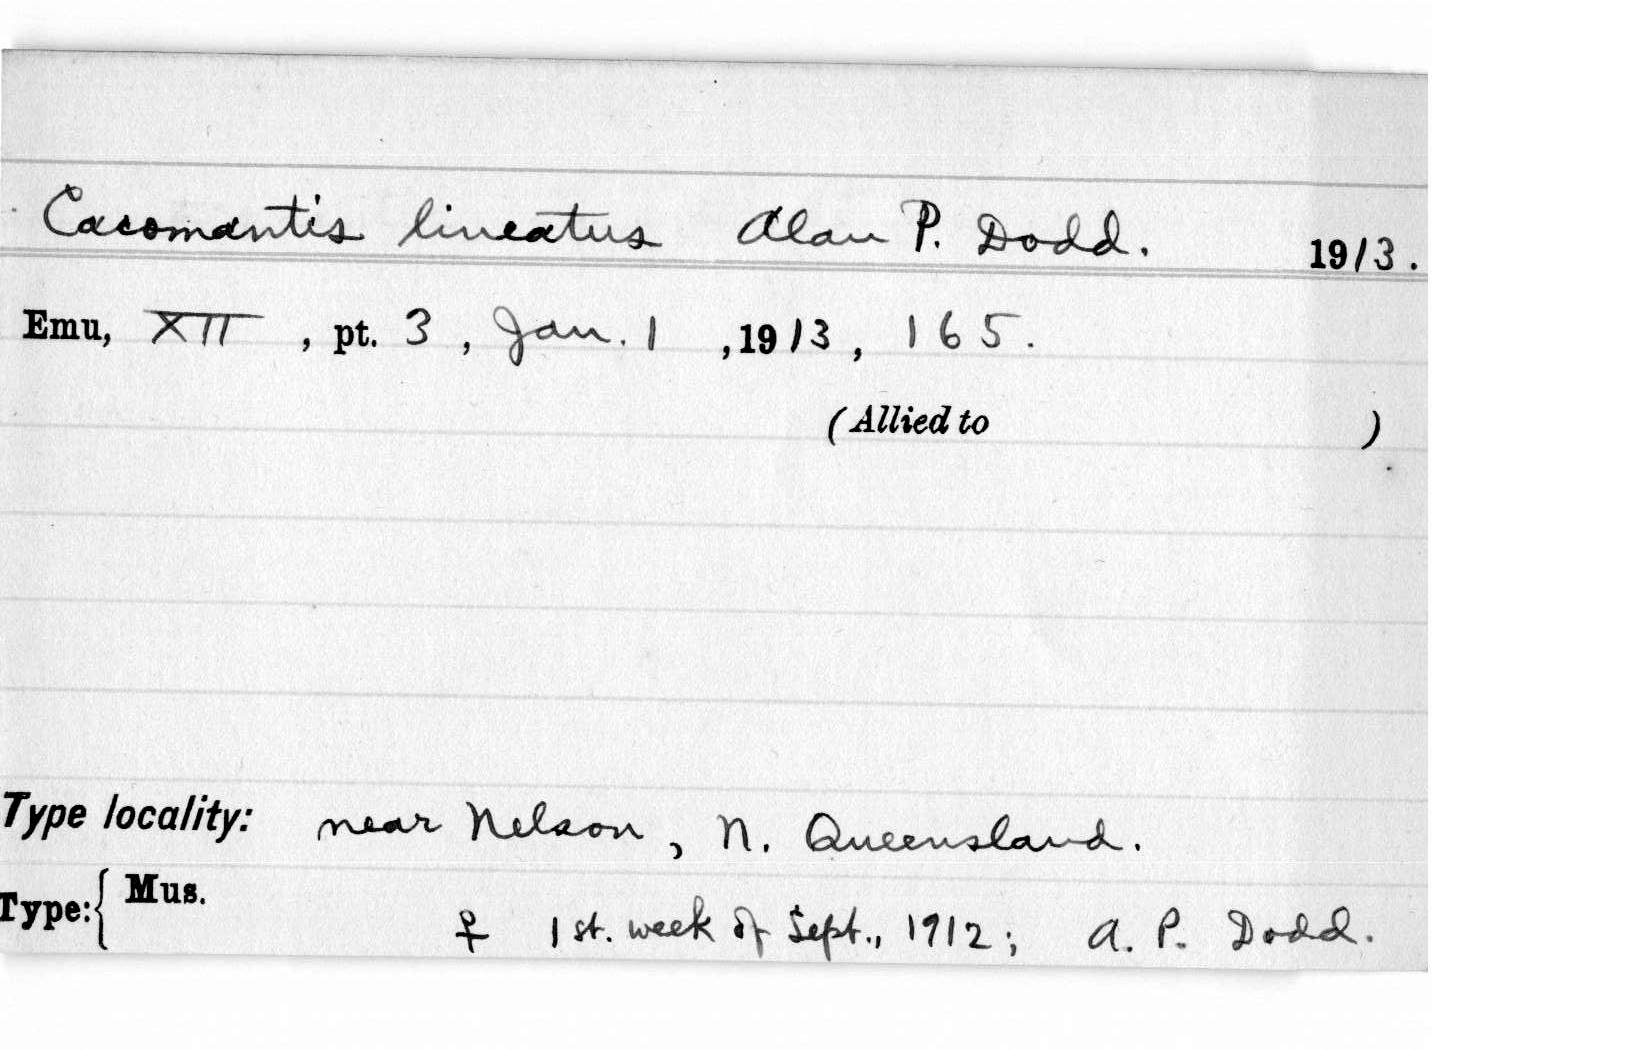 Cacomantis lineatus Alan P. Dodd. 1913.
Emu, XII, pt. 3, Jan. 1, 1913, 165.
(Allied to )
Type locality: near Nelson, N. Queensland.
Type: { Mus.
♀ 1st. week of Sept., 1912; A. P. Dodd.